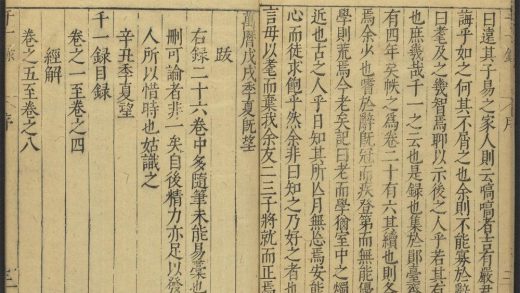 曰違其子易之家人則云嗃嗃者吉有嚴君
誨乎如之何其不屑之也余則不能寡於辭
曰耄及之幾智焉聊以示後之人乎若其有
也庶幾哉千一之云也是録也集於鄖臺
有四年矣帙之為卷二十有六其續也則各
焉余少也嘗於辭既冠而疾登第而無能優
學則荒焉今老矣記曰老而學猶室中之燭
近也古之人乎日知其所亾月無忘焉安能
心而徒求飽乎然余非曰知之乃好之者也
言毋以耄而棄我余友二三子將就而正焉
萬曆戊戌季夏既望
跋
右録二十六卷中多隨筆未能易稾也
刪可論者非一矣自後精力亦足以發
人所以惜時也姑識之
辛丑季夏望
千一録目録
卷之一至卷之四
經解
卷之五至卷之八
序